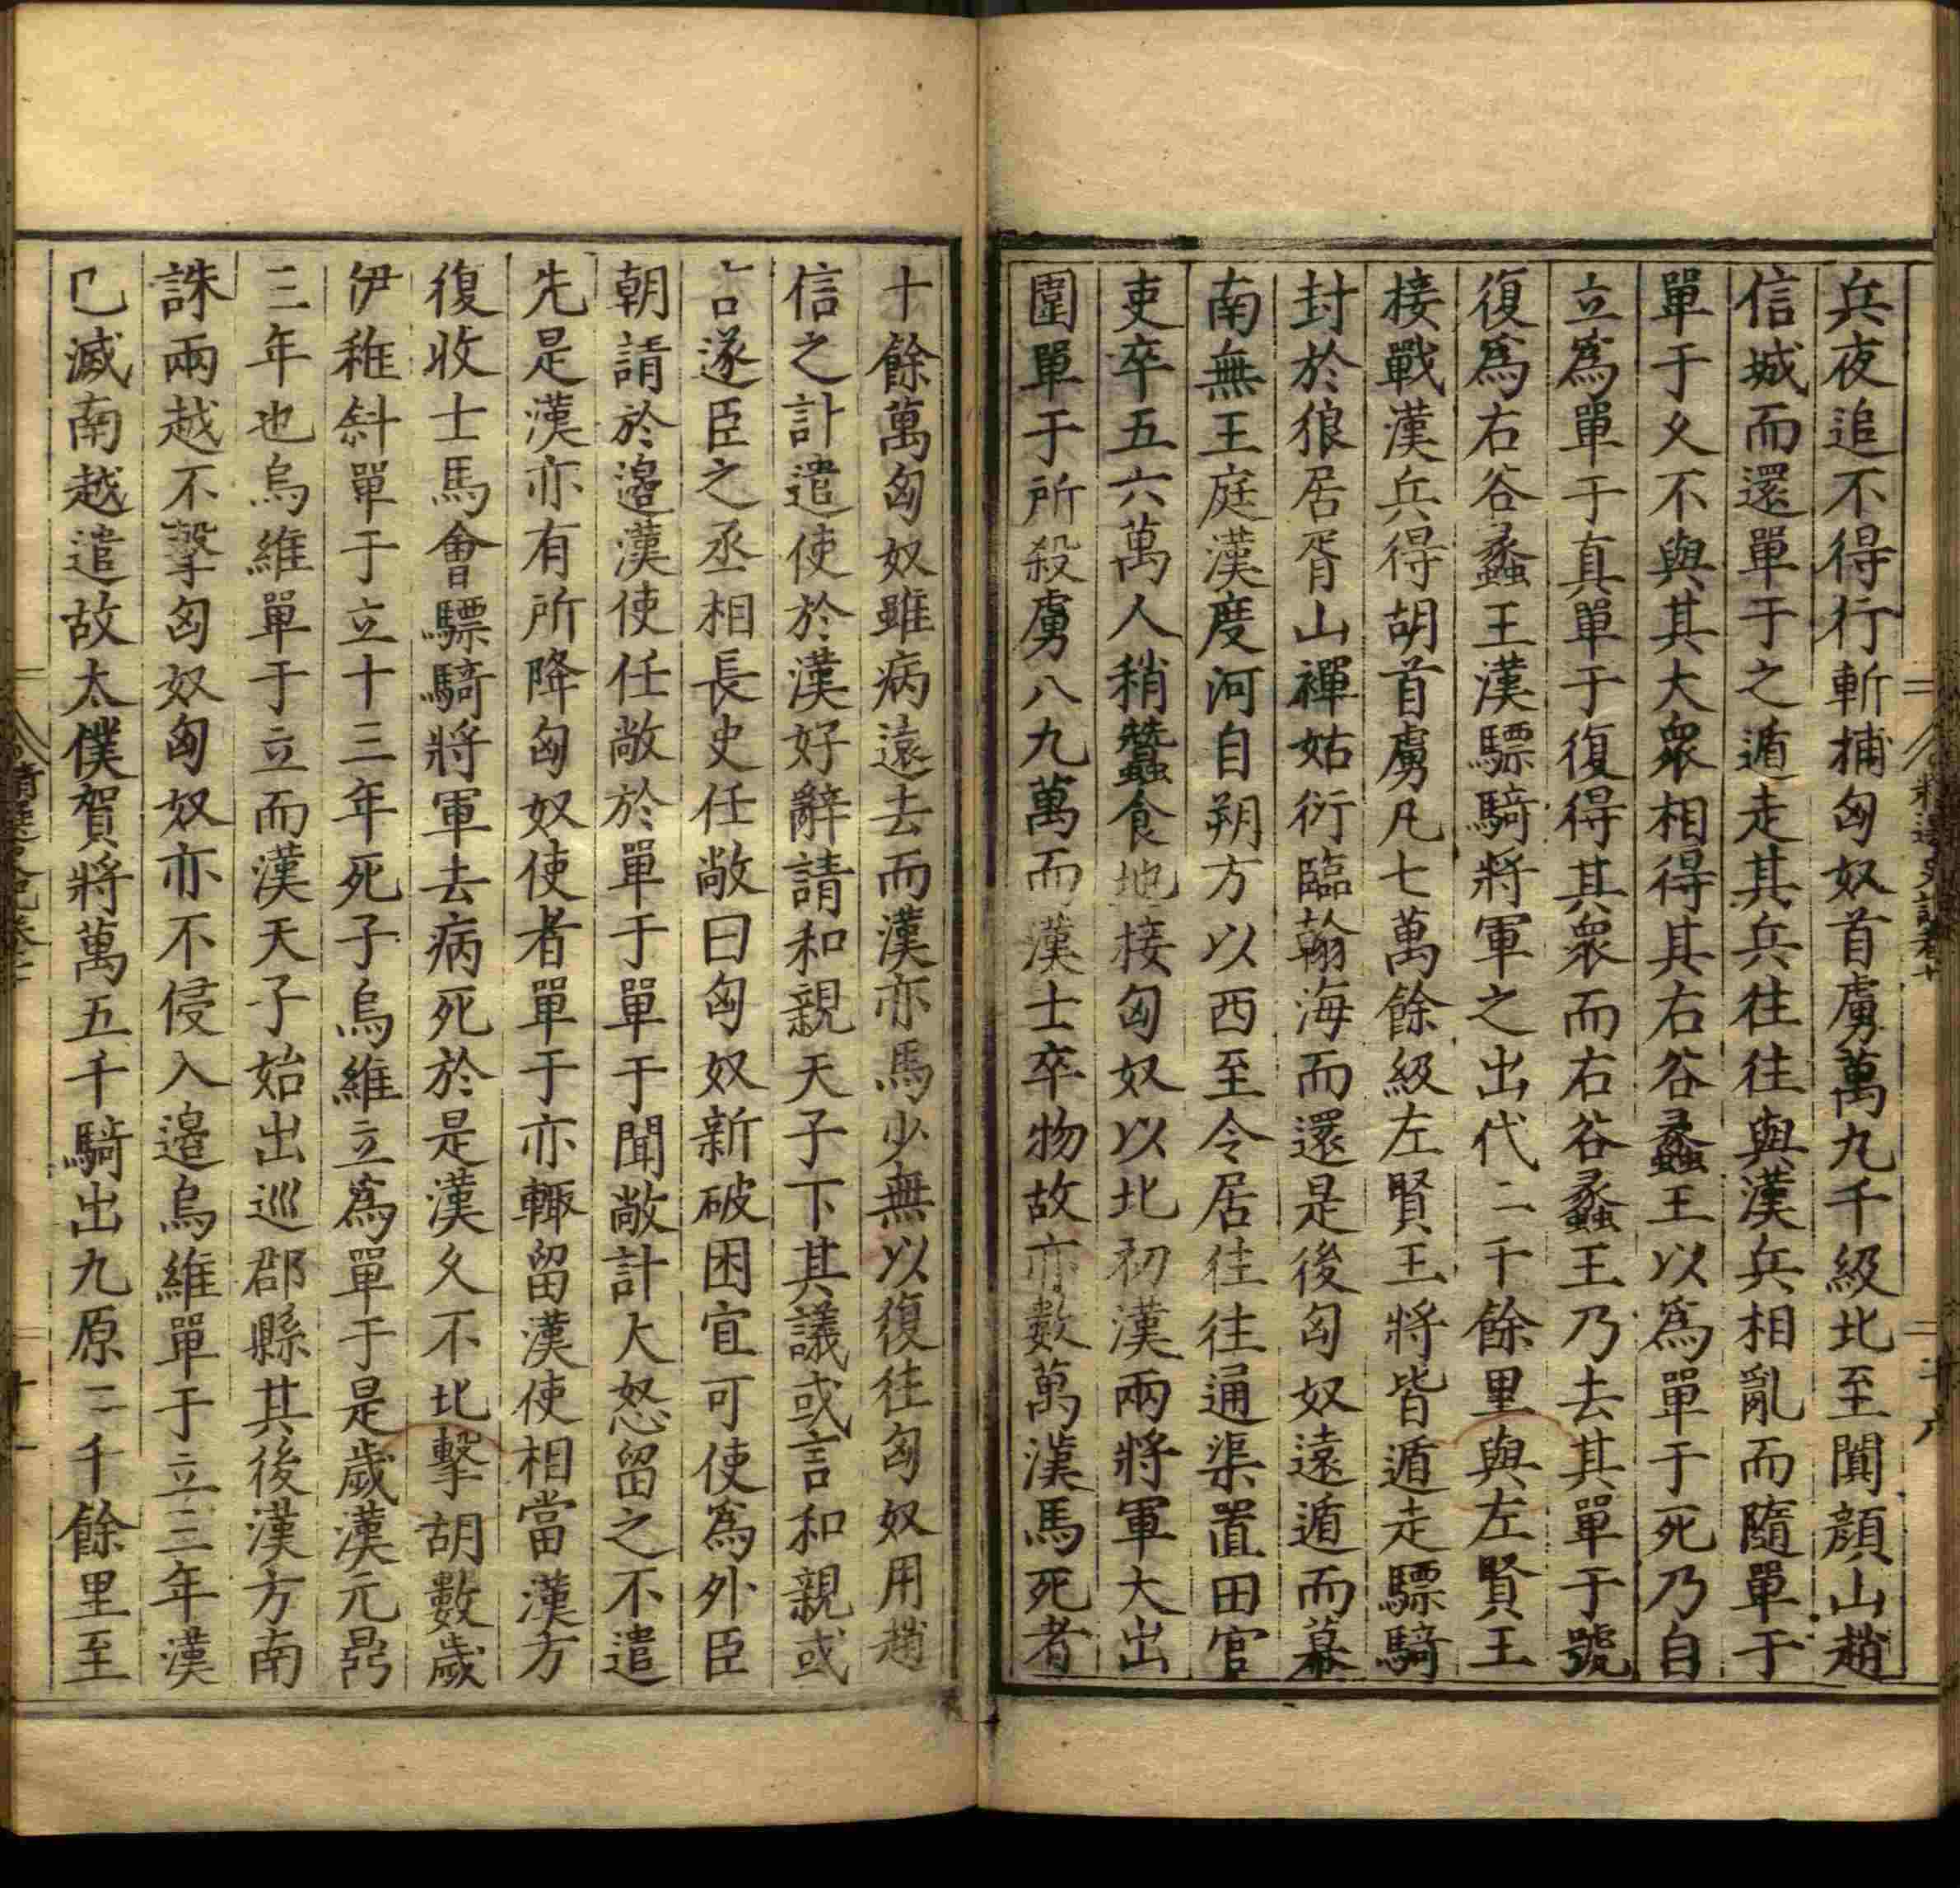 兵夜追不得行斬捕匈奴首虜萬九千級北至闐顏山趙
信城而還單于之遁走其兵往往與漢兵相亂而隨單于
單于久不與其大衆相得其右谷蠡王以爲單于死乃自
立爲單于真單于復得其衆而右谷蠡王乃去其單于號
復爲右谷蠡王漢驃騎將軍之出代二千餘里與左賢王
接戰漢兵得胡首虜凡七萬餘級左賢王將皆遁走驃騎
封於狼居胥山禪姑衍臨翰海而還是後匈奴遠遁而幕
南無王庭漢度河自朔方以西至令居往往通渠置田官
吏卒五六萬人稍蠶食地接匈奴以北初漢兩將軍大出
圍單于所殺虜八九萬而漢士卒物故亦數萬漢馬死者
十餘萬匈奴雖病遠去而漢亦馬少無以復往匈奴用趙
信之計遣使於漢好辭請和親天子下其議或言和親或
言遂臣之丞相長史任敞曰匈奴新破困宜可使爲外臣
朝請於邉漢使任敞於單于單于聞敞計大怒留之不遣
先是漢亦有所降匈奴使者單于亦輙留漢使相當漢方
復收士馬會驃騎將軍去病死於是漢久不北擊胡數歲
伊稚斜單于立十三年死子烏維立爲單于是歲漢元鼎
三年也烏維單于立而漢天子始出巡郡縣其後漢方南
誅兩越不擊匈奴匈奴亦不侵入邉烏維單于立三年漢
已滅南越遣故太僕賀將萬五千騎出九原二千餘里至
精選史記卷十